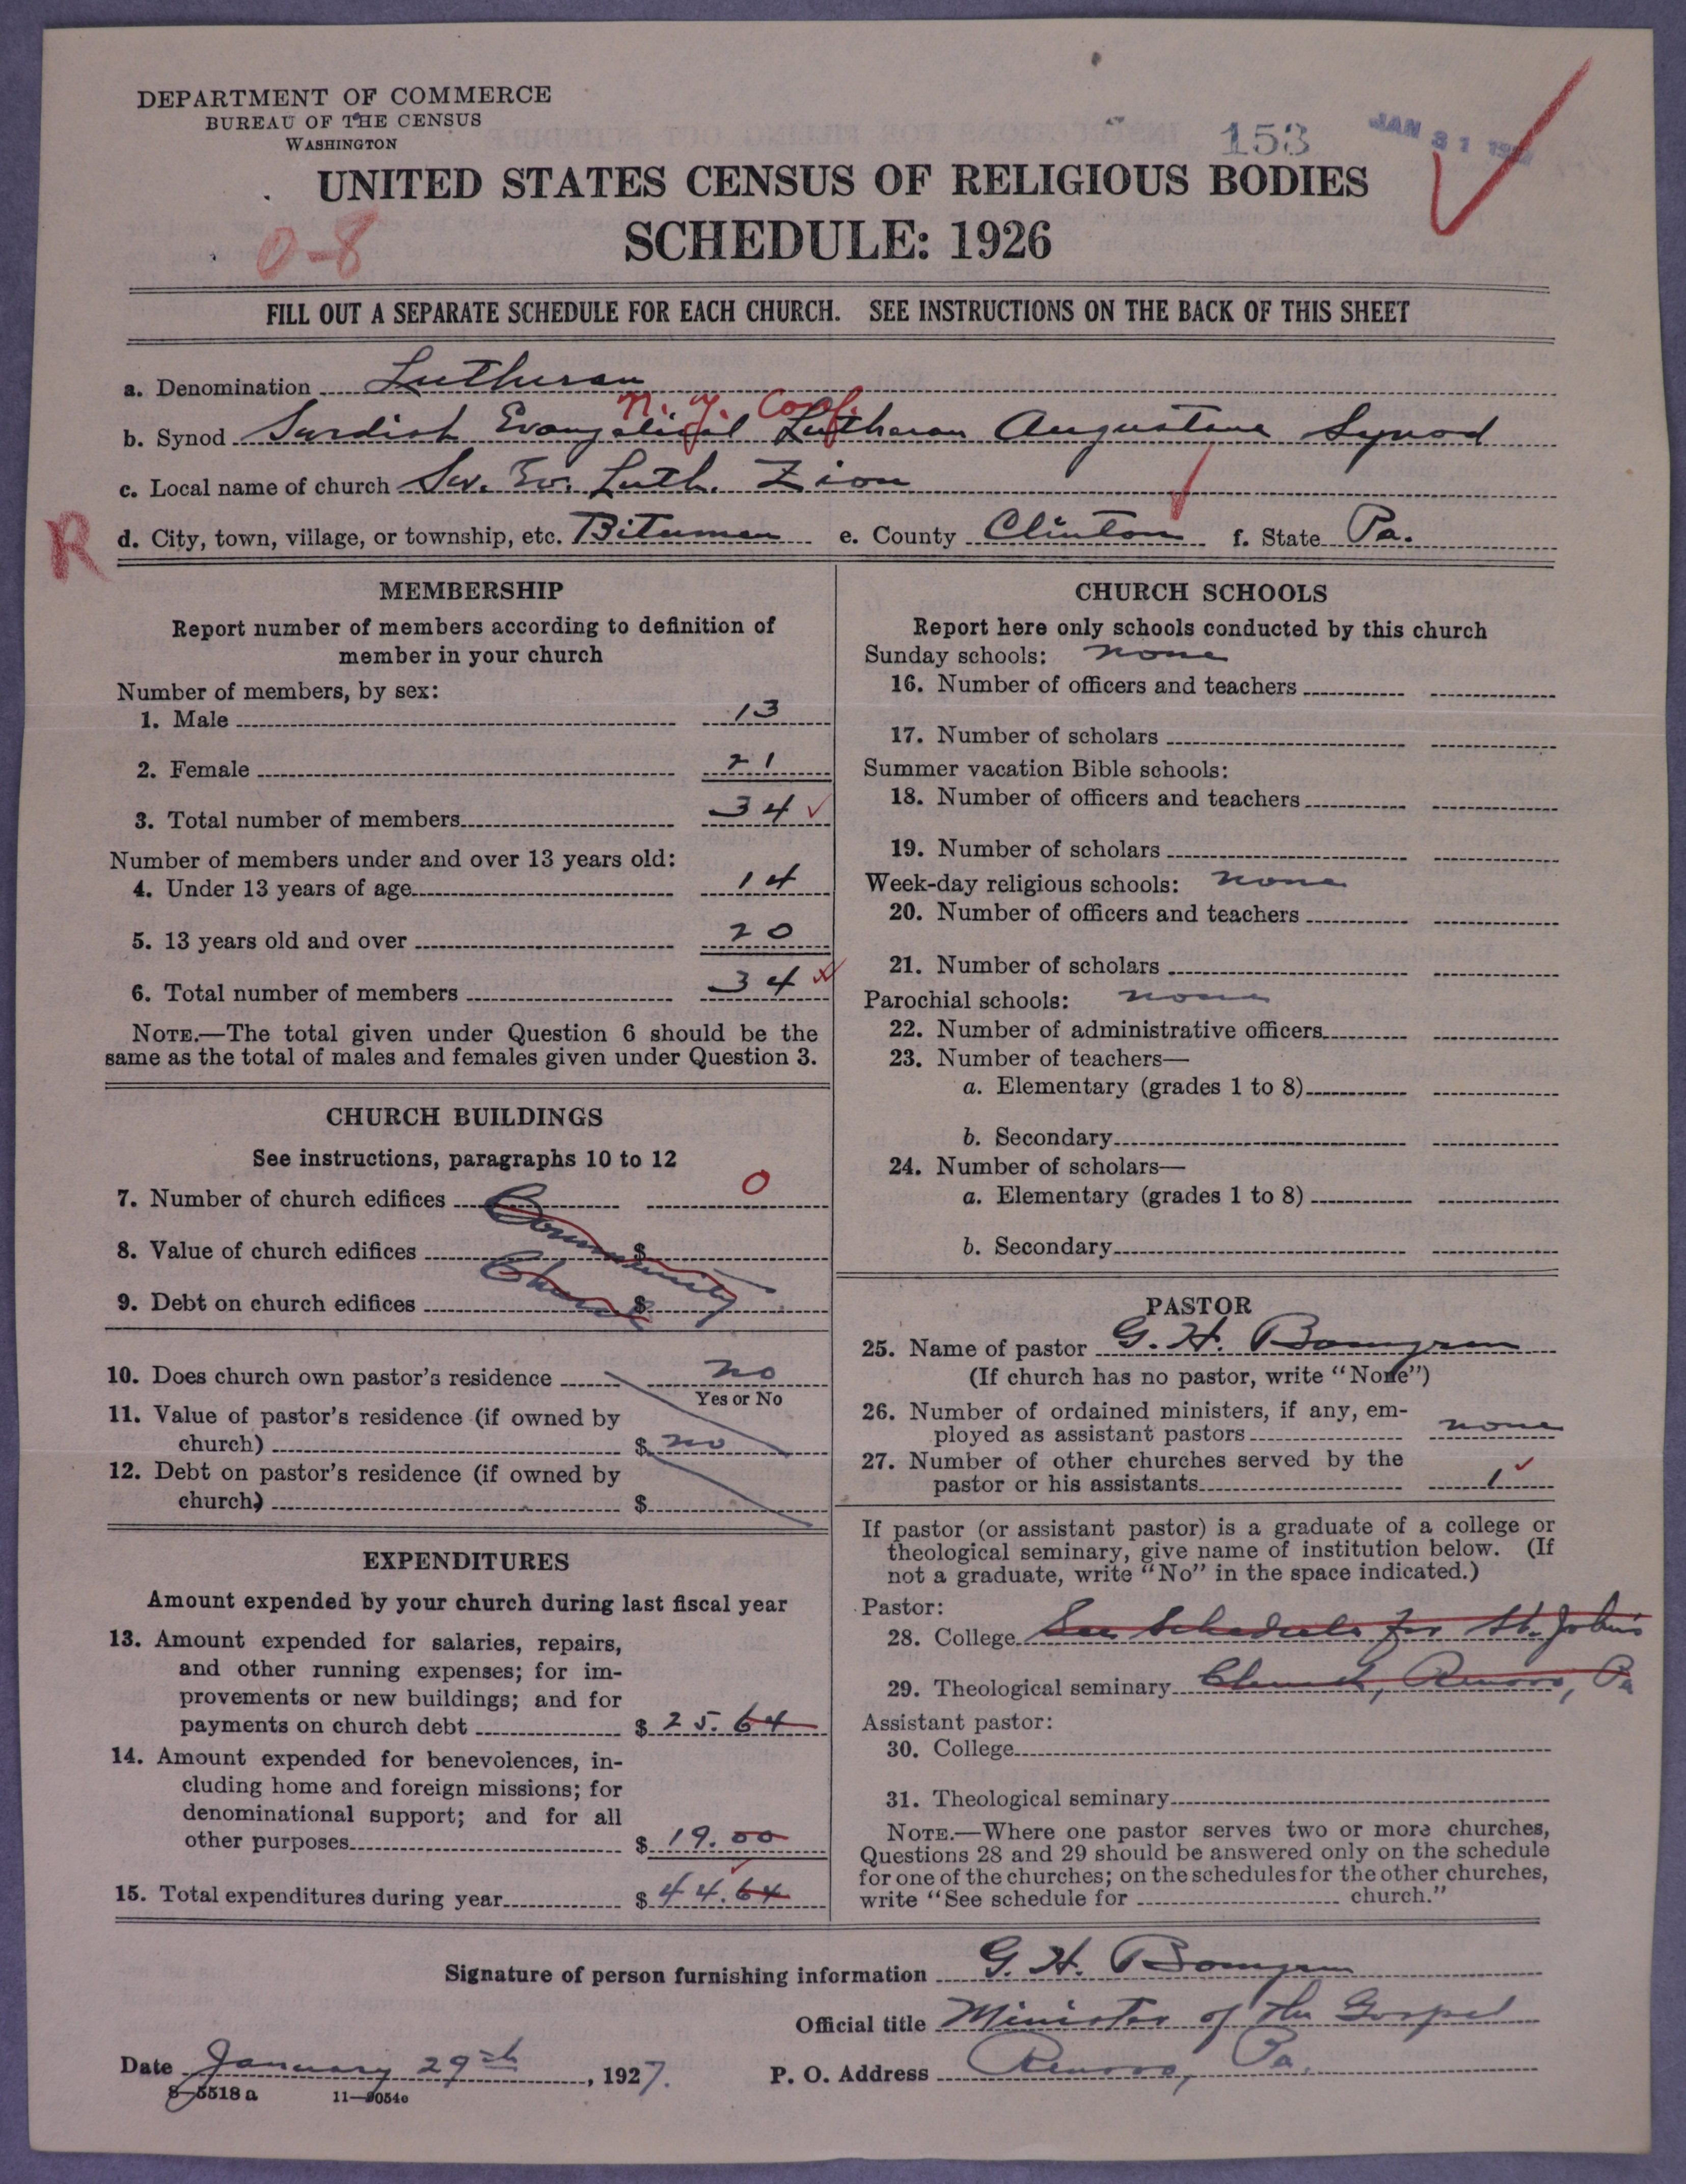 DEPARTMENT OF COMMERCE
BUREAU OF THE CENSUS
WASHINGTON
153
JAN 31 1927
UNITED STATES CENSUS OF RELIGIOUS BODIES
SCHEDULE: 1926
0-8
FILL OUT A SEPARATE SCHEDULE FOR EACH CHURCH. SEE INSTRUCTIONS ON THE BACK OF THIS SHEET
a. Denomination Lutheran
N. Y. Conf.
b. Synod Swedish Evangelical Lutheran Augustana Synod
c. Local name of church Sw. Ev. Luth. Zion
R
d. City, town, village, or township, etc. Bitumen e. County Clinton f. State Pa.
MEMBERSHIP
Report number of members according to definition of
member in your church
Number of members, by sex:
1. Male 13
2. Female 21
3. Total number of members 34
Number of members under and over 13 years old:
4. Under 13 years of age 14
5. 13 years old and over 20
6. Total number of members 34
NOTE.—The total given under Question 6 should be the
same as the total of males and females given under Question 3.
CHURCH BUILDINGS
See instructions, paragraphs 10 to 12
7. Number of church edifices 0
Community
8. Value of church edifices $
Church
9. Debt on church edifices $
10. Does church own pastor's residence no
Yes or No
11. Value of pastor's residence (if owned by
church) $ no
12. Debt on pastor's residence (if owned by
church) $
EXPENDITURES
Amount expended by your church during last fiscal year
13. Amount expended for salaries, repairs,
and other running expenses; for im-
provements or new buildings; and for
payments on church debt $ 25.64
14. Amount expended for benevolences, in-
cluding home and foreign missions; for
denominational support; and for all
other purposes $ 19.00
15. Total expenditures during year $ 44.64
CHURCH SCHOOLS
Report here only schools conducted by this church
Sunday schools: none
16. Number of officers and teachers
17. Number of scholars
Summer vacation Bible schools:
18. Number of officers and teachers
19. Number of scholars
Week-day religious schools: none
20. Number of officers and teachers
21. Number of scholars
Parochial schools: none
22. Number of administrative officers
23. Number of teachers—
a. Elementary (grades 1 to 8)
b. Secondary
24. Number of scholars—
a. Elementary (grades 1 to 8)
b. Secondary
PASTOR
25. Name of pastor G. H. Bomgren
(If church has no pastor, write "None")
26. Number of ordained ministers, if any, em-
ployed as assistant pastors none
27. Number of other churches served by the
pastor or his assistants 1
If pastor (or assistant pastor) is a graduate of a college or
theological seminary, give name of institution below. (If
not a graduate, write "No" in the space indicated.)
Pastor:
28. College See Schedule for St. John's
29. Theological seminary Church, Renovo, Pa
Assistant pastor:
30. College
31. Theological seminary
NOTE.—Where one pastor serves two or more churches,
Questions 28 and 29 should be answered only on the schedule
for one of the churches; on the schedules for the other churches,
write "See schedule for church."
Signature of person furnishing information G. H. Bomgren
Official title Minister of the Gospel
Date January 29th, 1927. P. O. Address Renovo, Pa.
8-5518 a 11-9054o